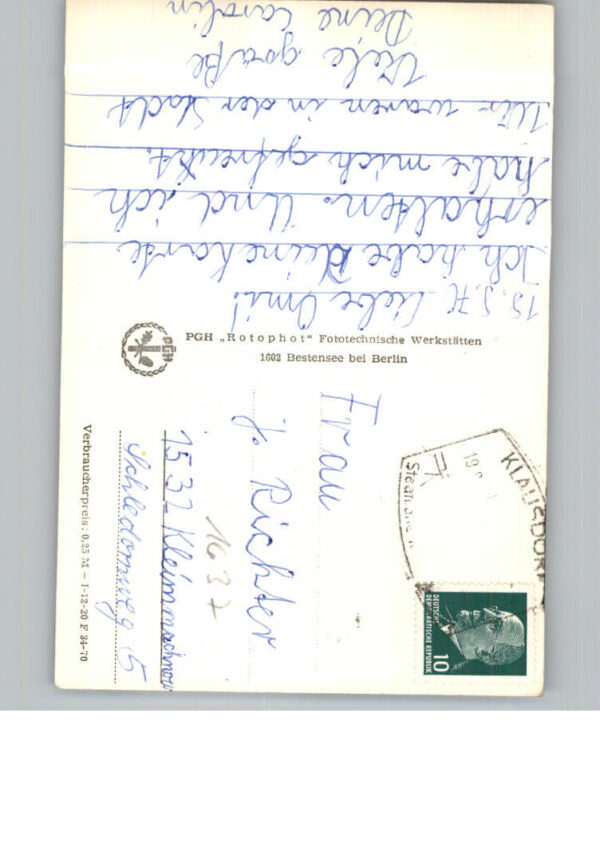 15.5.71. Liebe Omi!
Ich habe Deine karte
erhalten. Und ich
habe mich gefreut.
Wir waren in der Stadt
Viele grüße
Deine Carolin
PGH „Rotophot“ Fototechnische Werkstätten
1602 Bestensee bei Berlin
PGH
Frau
J. Richter
1532 Kleinmachnow
1637
Verbraucherpreis: 0,25 M – I-12-20 F 84-70
KLAUSDORF
DEUTSCHE
DEMOKRATISCHE REPUBLIK
10